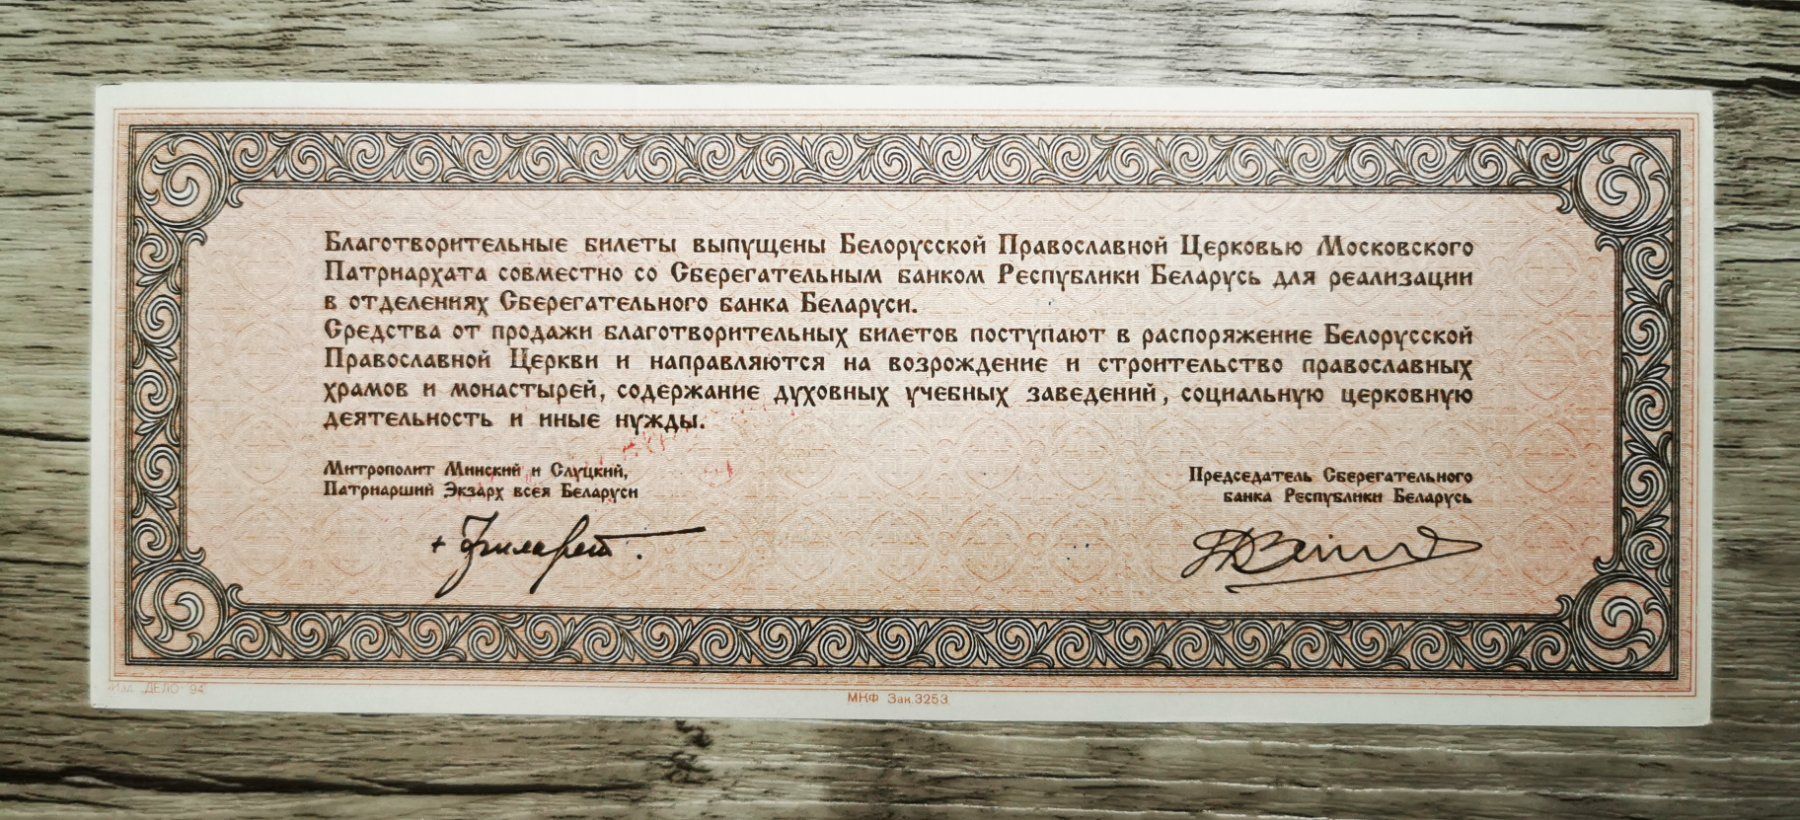 Благотворительные билеты выпущены Белорусской Православной Церковью Московского
Патриархата совместно со Сберегательным банком Республики Беларусь для реализации
в отделениях Сберегательного банка Беларуси.
Средства от продажи благотворительных билетов поступают в распоряжение Белорусской
Православной Церкви и направляются на возрождение и строительство православных
храмов и монастырей, содержание духовных учебных заведений, социальную церковную
деятельность и иные нужды.
Митрополит Минский и Слуцкий,
Патриарший Экзарх всея Беларуси
Председатель Сберегательного
банка Республики Беларусь
+ Филарет.
Изд. „ДЕЛО" 94
МКФ Зак.3253